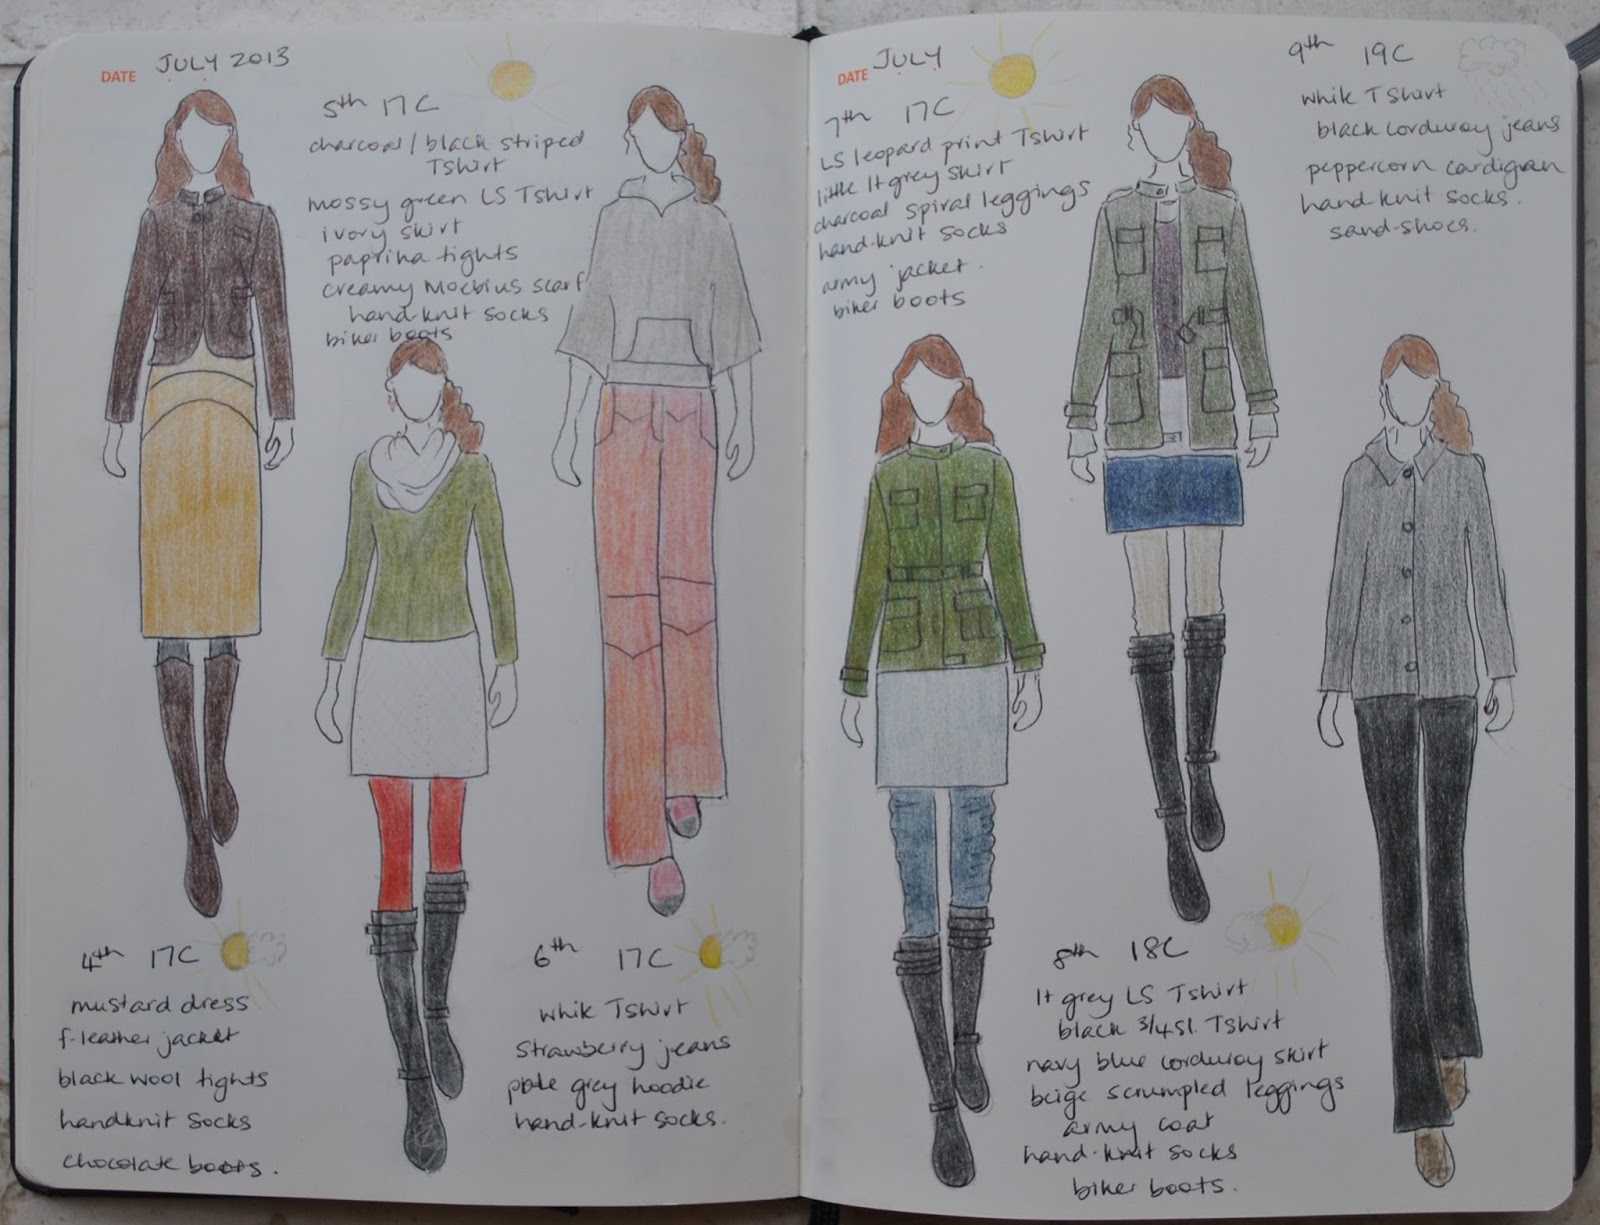 DATE JULY 2013
5th 17C
charcoal / black striped
Tshirt
mossy green LS Tshirt
ivory skirt
paprika tights
creamy Moebius scarf
hand-knit socks
biker boots
4th 17C
mustard dress
f-leather jacket
black wool tights
handknit socks
chocolate boots.
6th 17C
white Tshirt
strawberry jeans
pale grey hoodie
hand-knit socks.
DATE JULY
7th 17C
LS leopard print Tshirt
little lt grey skirt
charcoal spiral leggings
hand-knit socks
army jacket.
biker boots
9th 19C
white Tshirt
black corduroy jeans
peppercorn cardigan
hand-knit socks.
sand-shoes.
8th 18C
lt grey LS Tshirt
black 3/4 sl. Tshirt
navy blue corduroy skirt
beige scrumpled leggings
army coat
hand-knit socks
biker boots.